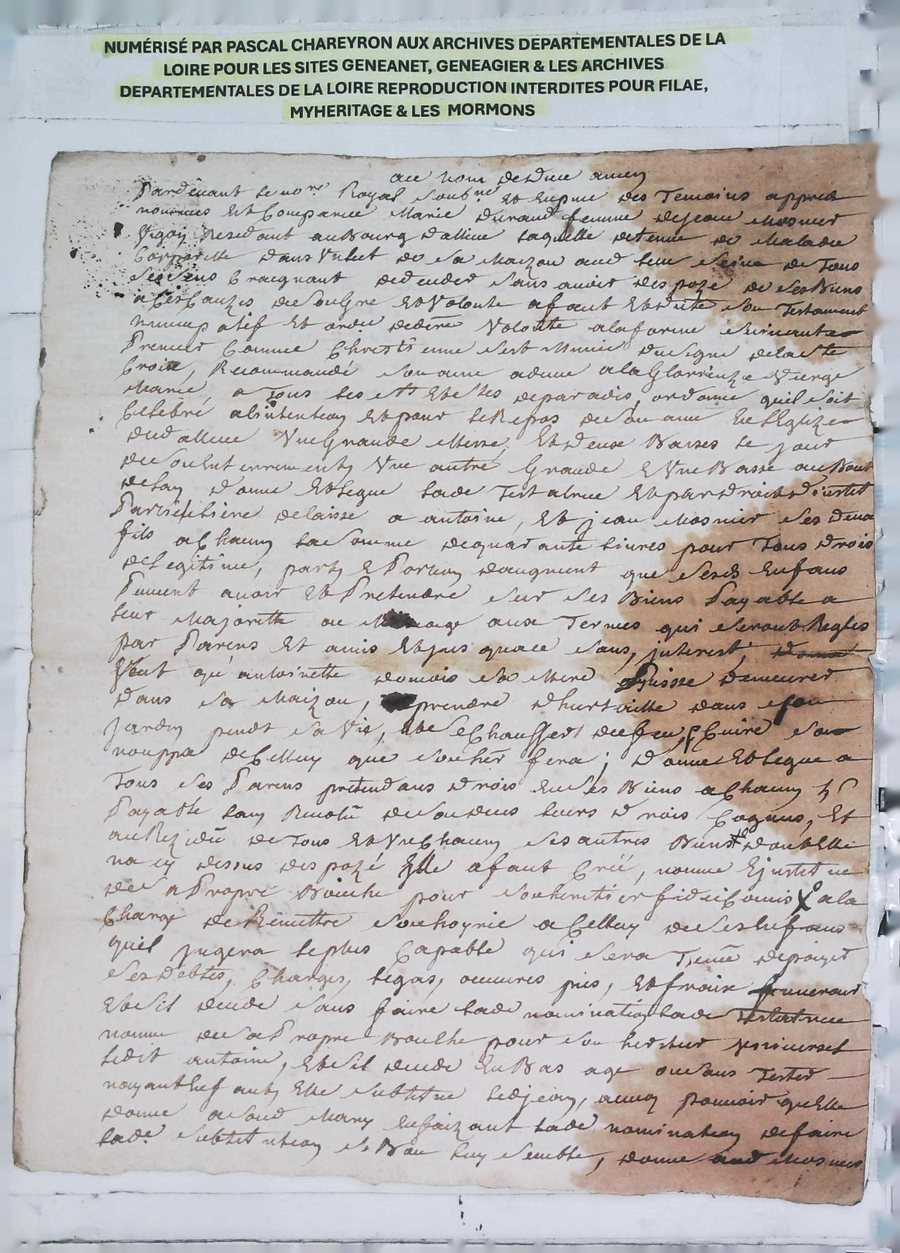 NUMÉRISÉ PAR PASCAL CHAREYRON AUX ARCHIVES DEPARTEMENTALES DE LA
LOIRE POUR LES SITES GENEANET, GENEAGIER & LES ARCHIVES
DEPARTEMENTALES DE LA LOIRE REPRODUCTION INTERDITES POUR FILAE,
MYHERITAGE & LES MORMONS
au nom de dieu amen
Pardevant le nore Royal soubne et en pnce des Temoins apprés
nommes Est Comparüe Marie durand femme de jean Mosnier
Vigon Residant au Bourg dallieu laquelle detenue de Maladie
Corporelle dans Vn lict de sa Maizon aud lieu de Tous
ses sens Craignant deceder sans avoir dispozé de ses Biens
a Ces Cauzes de son gre Et Volonte a fait Et dicte son Testament
nuncupatif Et ordre dernre Volonte a la forme suivante
Premier Comme Chrestienne s'est Munie du signe de la ste
Croix, Recommandé son ame a dieu a la Glorieuze Vierge
Marie, a Tous les sts Et stes de paradis, ordonne quil soit
Celebré a lintention Et pour le Repos de son ame En lEglize
dud allieu Vne Grande Messe, Et deux Basses le jour
de son Enterrement, Vne autre Grande, Et Vne Basse au Bout
de lan, donne Et legue lade Testatrice Et par droit d'instit
Particuliere delaisse a antoine, Et jean Mosnier ses deux
fils a Chacun la somme de quarante livres pour Tous drois
de legitime, part, Et Portion daugment que sesds Enfans
Peuvent avoir Et Pretendre sur ses Biens Payable a
leur Majorite ou Mariage aux Termes qui seront Reglés
par Parens Et amis Et jusqua ce sans, interest,
Veut qu'antoinette sa Mere Puisse demeurer
dans sa Maizon, prendre d'hurtaille dans son
Jardin pendt sa Vie, Et se Chauffer de feu, Cuire son
de Celluy que son her fera; donne Et legue a
Tous ses Parens pretendans drois En ses Biens a Chacun 5 s
Payable Et
au Rezidu de Tous Et Vn Chacun ses autres Biens dont Elle
na cy dessus dispozé Elle a fait Creé, nomme Ejnstitue
de sa Propre Bouche pour son heritier fideicomis a la
Charge de Remettre son hoyrie a Celluy de ses Enfans
quil jugera le plus Capable qui sera Tenu de payer
ses debtes, Charges, legas, oeuvres pies, Et fraix funeraux
Et s'il decede sans faire lade nomination lade Testatrice
nomme de sa Propre Bouche pour son heritier Vniversel
ledit antoine, Et s'il decede En Bas age ou sans Tester
nayant Enfants Elle substitue led jean, avec pouvoir quElle
donne a sond Mary En faizant lade nomination de faire
lade substitution si Bon luy semble, donne aud Mosnier